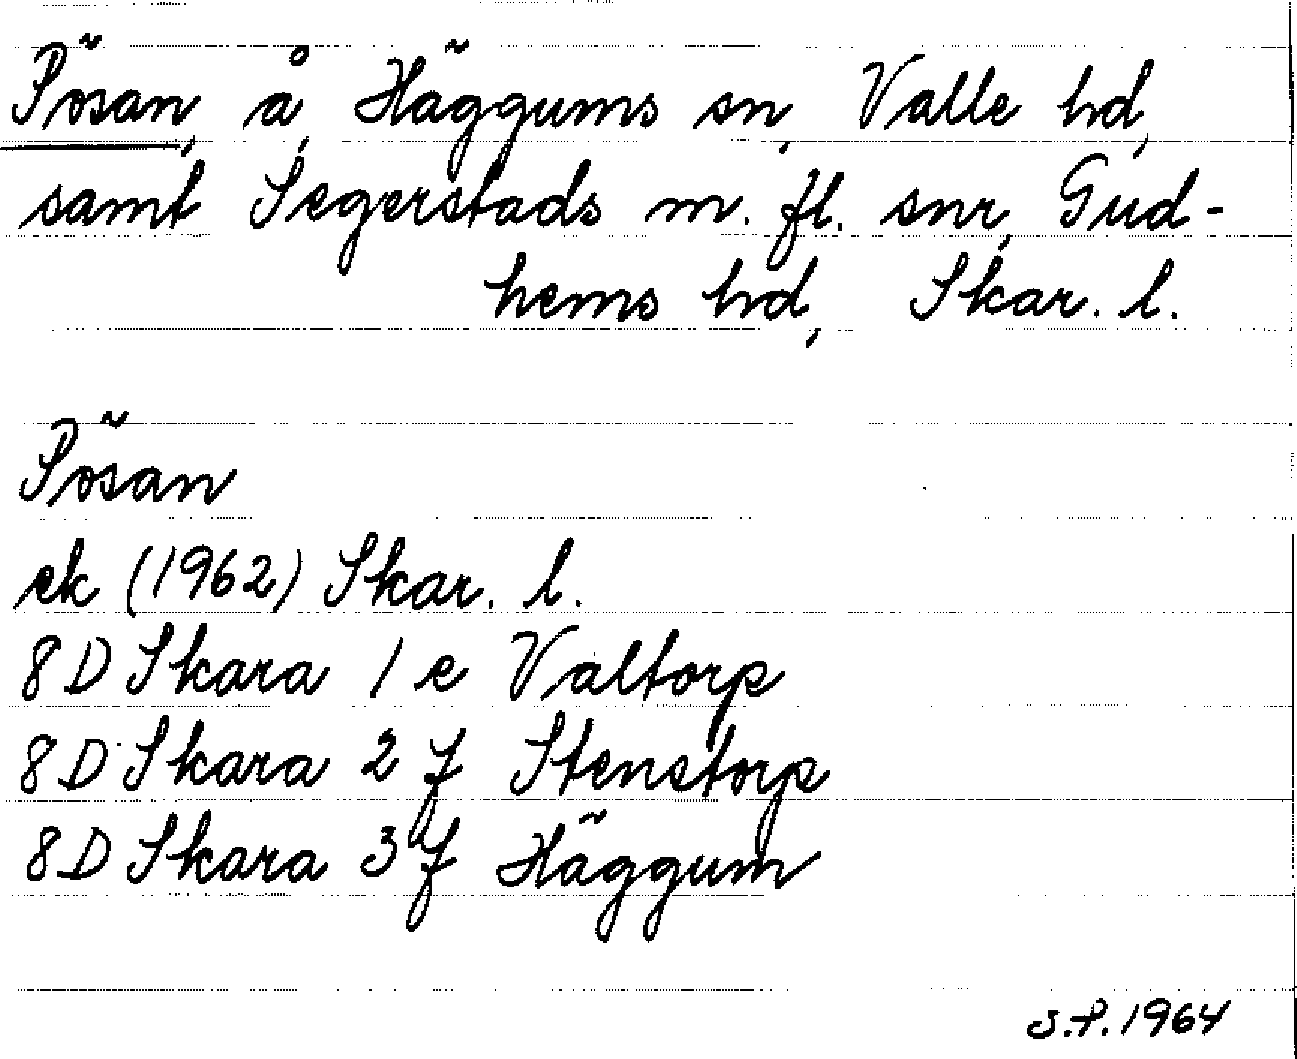 Pösan, å, Häggums sn, Valle hd,
samt Segerstads m. fl. snr, Gud-
hems hd, Skar. l.
Pösan
ek (1962) Skar. l.
8D Skara 1 e Valtorp
8D Skara 2 f Stenstorp
8D Skara 3 f Häggum
S.P. 1964